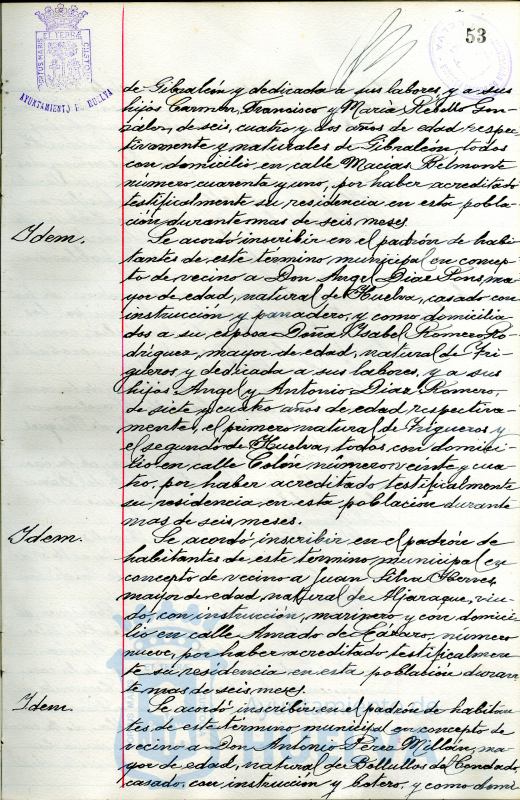 53
AYUNTAMIENTO DE HUELVA
de Gibraleón y dedicada a sus labores, y a sus
hijos Carmen, Francisco y María Rebollo Gon-
zález, de seis, cuatro y dos años de edad respec-
tivamente y naturales de Gibraleón, todos
con domicilio en calle Macías Belmonte
número cuarenta y uno, por haber acreditado
testificalmente su residencia en esta pobla-
ción durante mas de seis meses.
Idem.
Se acordó inscribir en el padrón de habi-
tantes de este término municipal en concep-
to de vecino a Don Angel Diaz Pons, ma-
yor de edad, natural de Huelva, casado con
instrucción y panadero, y como domicilia-
dos a su esposa Doña Isabel Romero Ro-
dríguez, mayor de edad, natural de Tri-
gueros y dedicada a sus labores, y a sus
hijos Angel y Antonio Diaz Romero,
de siete y cuatro años de edad respectiva-
mente, el primero natural de Trigueros y
el segundo de Huelva, todos con domici-
lio en calle Colón número veinte y cua-
tro, por haber acreditado testificalmente
su residencia en esta población durante
mas de seis meses.
Idem.
Se acordó inscribir en el padrón de
habitantes de este término municipal en
concepto de vecino a Juan Silva
mayor de edad, natural de Aljaraque, viu-
do, con instrucción, marinero y con domici-
lio en calle Amado de Lázaro, número
nueve, por haber acreditado testificalmen-
te su residencia en esta población duran-
te mas de seis meses.
Idem.
Se acordó inscribir en el padrón de habitan-
tes de este término municipal en concepto de
vecino a Don Antonio Pérez Millán, ma-
yor de edad, natural de Bollullos del Condado,
casado, con instrucción y botero, y como domi-